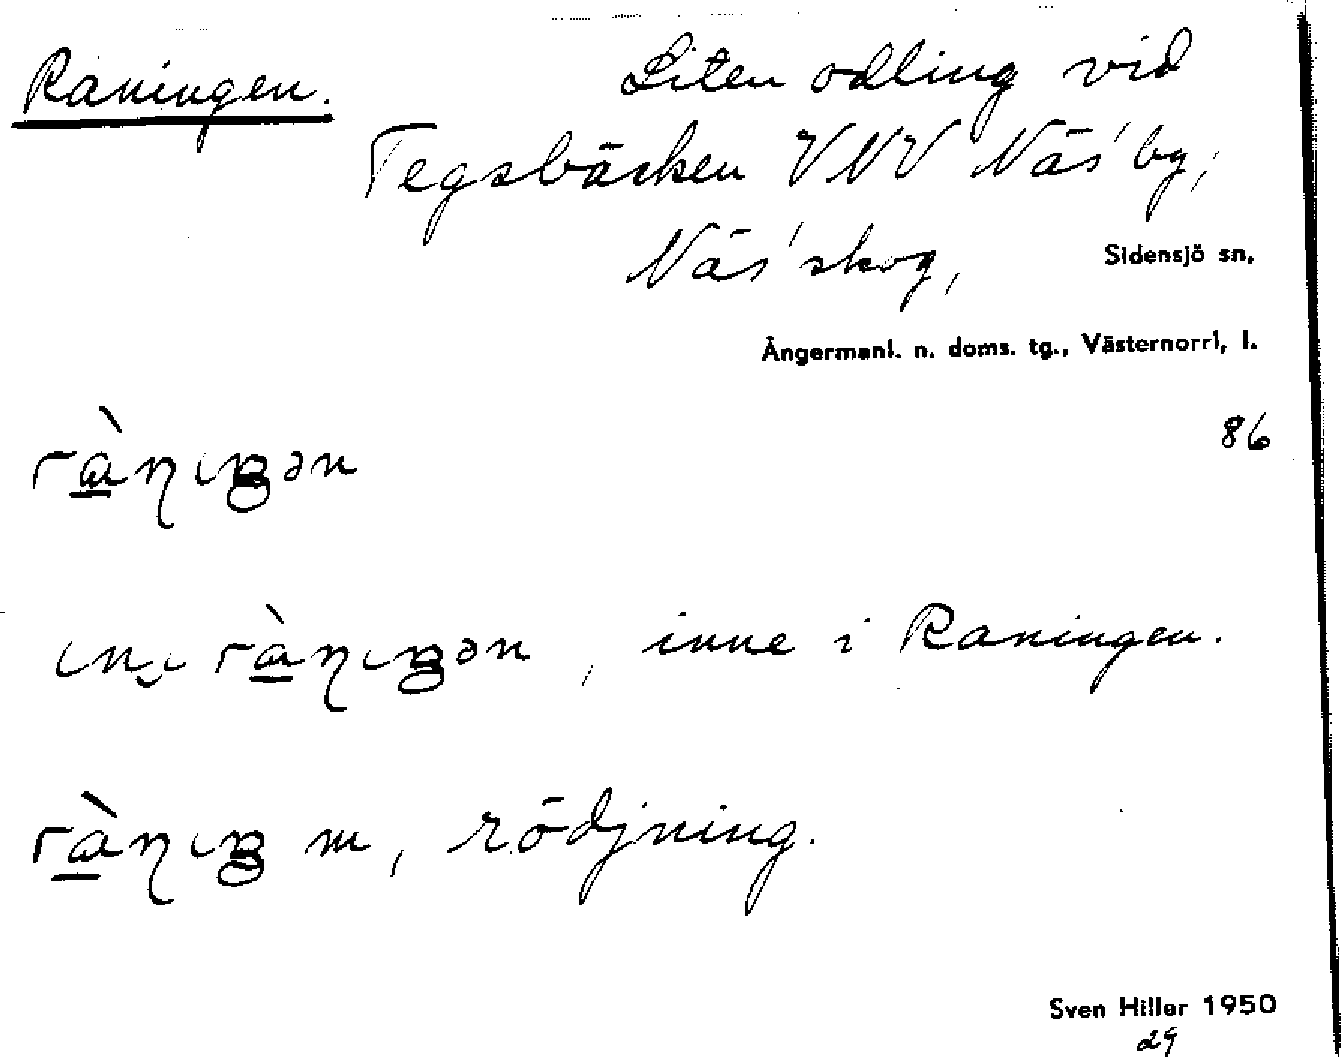 Raningen. Liten odling vid
Tegsbäcken VNV Näs' by,
Näs' skog, Sidensjö sn.
Ångermanl. n. doms. tg., Västernorrl. l.
86
, inne i Raningen.
m, rödjning.
Sven Hiller 1950
29